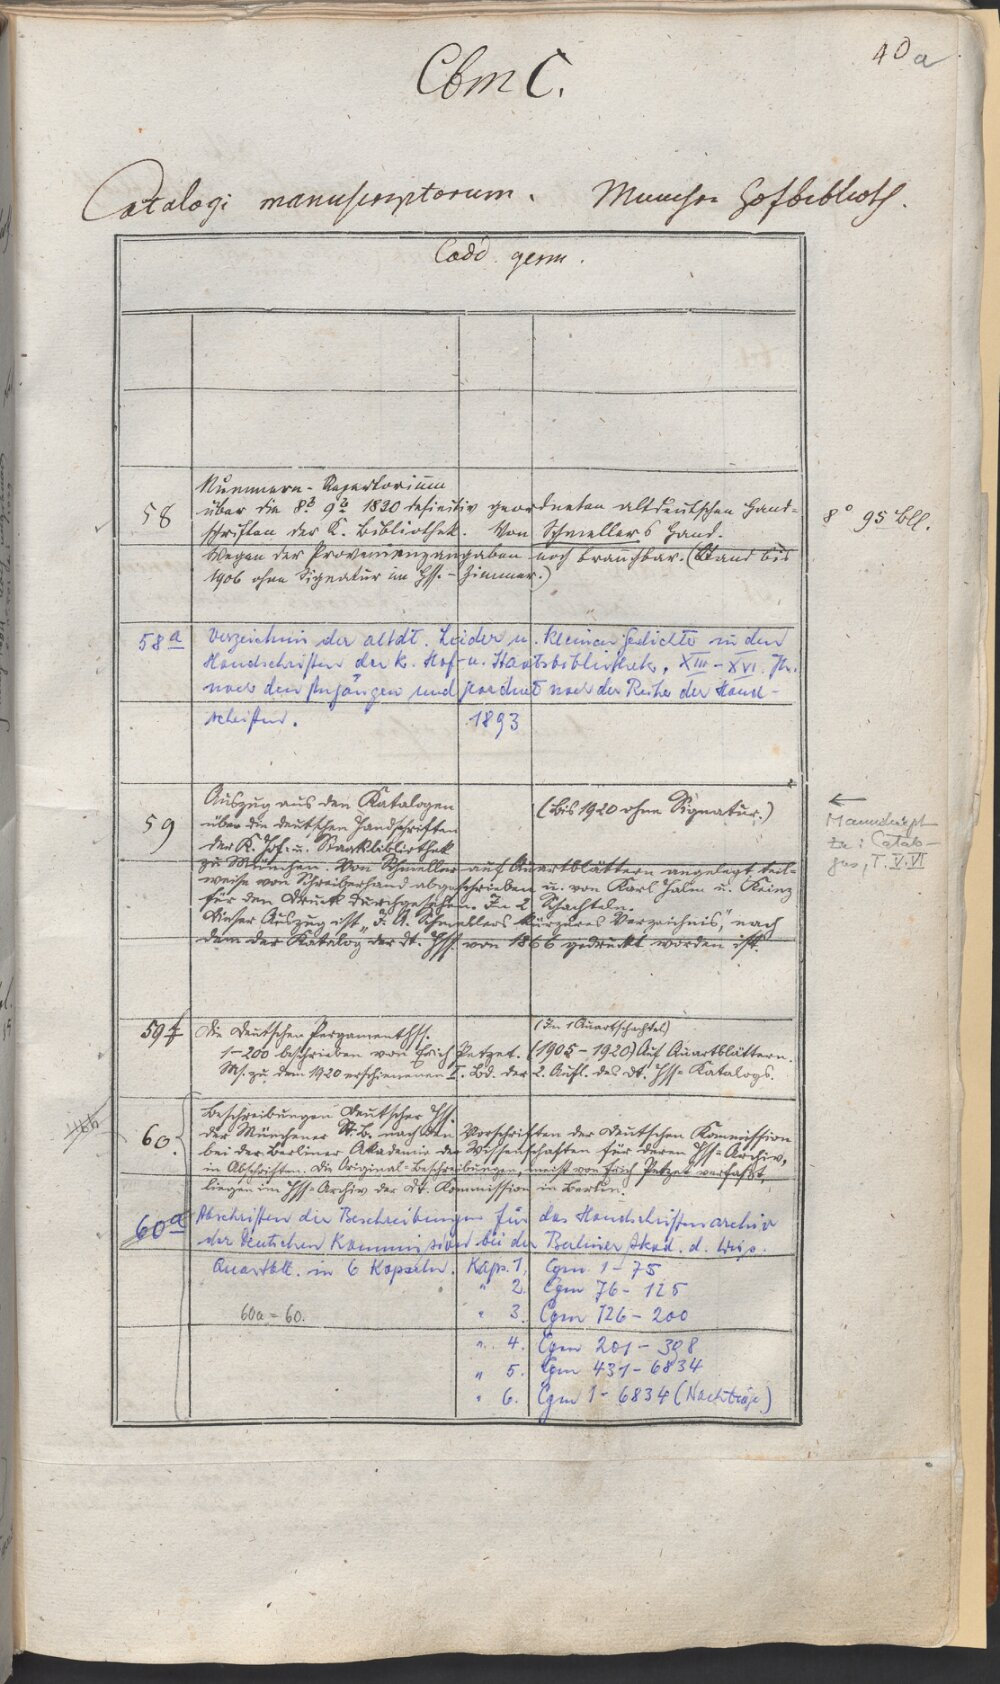 40a
Cbm C.
Catalogi manuscriptorum. Münchn Hofbiblioth.
Codd. germ.
58
Nummern-Repertorium
über die 1820 definitiv geordneten altdeutschen Hand=
schriften der K. Bibliothek. Von Schmellers Hand.
8° 95 bll.
Wegen der Provenienzangaben noch brauchbar. (Stand bis
1906 ohne Signatur im Hss.-Zimmer.)
58a
Verzeichnis der altdt. Lieder u. kleinen Gedichte in den
Handschriften der k. Hof- u. Staatsbibliothek, XIII-XVI. Jh.
nach den Anfängen und geordnet nach der Reihe der Hand-
schriften. 1893
59
Auszug aus den Katalogen
über die deutschen Handschriften
der K. Hof- u. Staatsbibliothek
(bis 1920 ohne Signatur.)
zu München. Von Schmeller auf Quartblättern angelegt teil=
weise von Schreiberhand abgeschrieben u. von Karl Halm u. Keinz
für den Druck durchgesehen. In 2 Schachteln.
Dieser Auszug ist „J. A. Schmellers kürzeres Verzeichnis", nach
dem der Katalog der dt. Hss. von 1866 gedruckt worden ist.
←
Manuskript
zu: Catalo-
gus, T. V. VI
59f
Die deutschen Pergamenthss.
(In 1 Quartschachtel)
1-200 beschrieben von Erich Petzet. (1905-1920) Auf Quartblättern.
Ms. zu dem 1920 erschienenen I. Bd. der 2. Aufl. des dt. Hss=Katalogs.
60.
Beschreibungen deutscher Hss.
der Münchener St. B. nach den Vorschriften der Deutschen Kommission
bei der Berliner Akademie der Wissenschaften für deren Hss=Archiv,
in Abschriften. Die Original=Beschreibungen, meist von Erich Petzet verfaßt,
liegen im Hss=Archiv der Dt. Kommission in Berlin.
60a
Abschriften der Beschreibungen für das Handschriftenarchiv
der Deutschen Kommission bei der Berliner Akad. d. Wiss.
Quartbll. in 6 Kapseln. Kaps. 1, Cgm 1-75
" 2. Cgm 76-125
60a = 60.
" 3. Cgm 126-200
" 4. Cgm 201-398
" 5. Cgm 431-6834
" 6. Cgm 1-6834 (Nachträge)